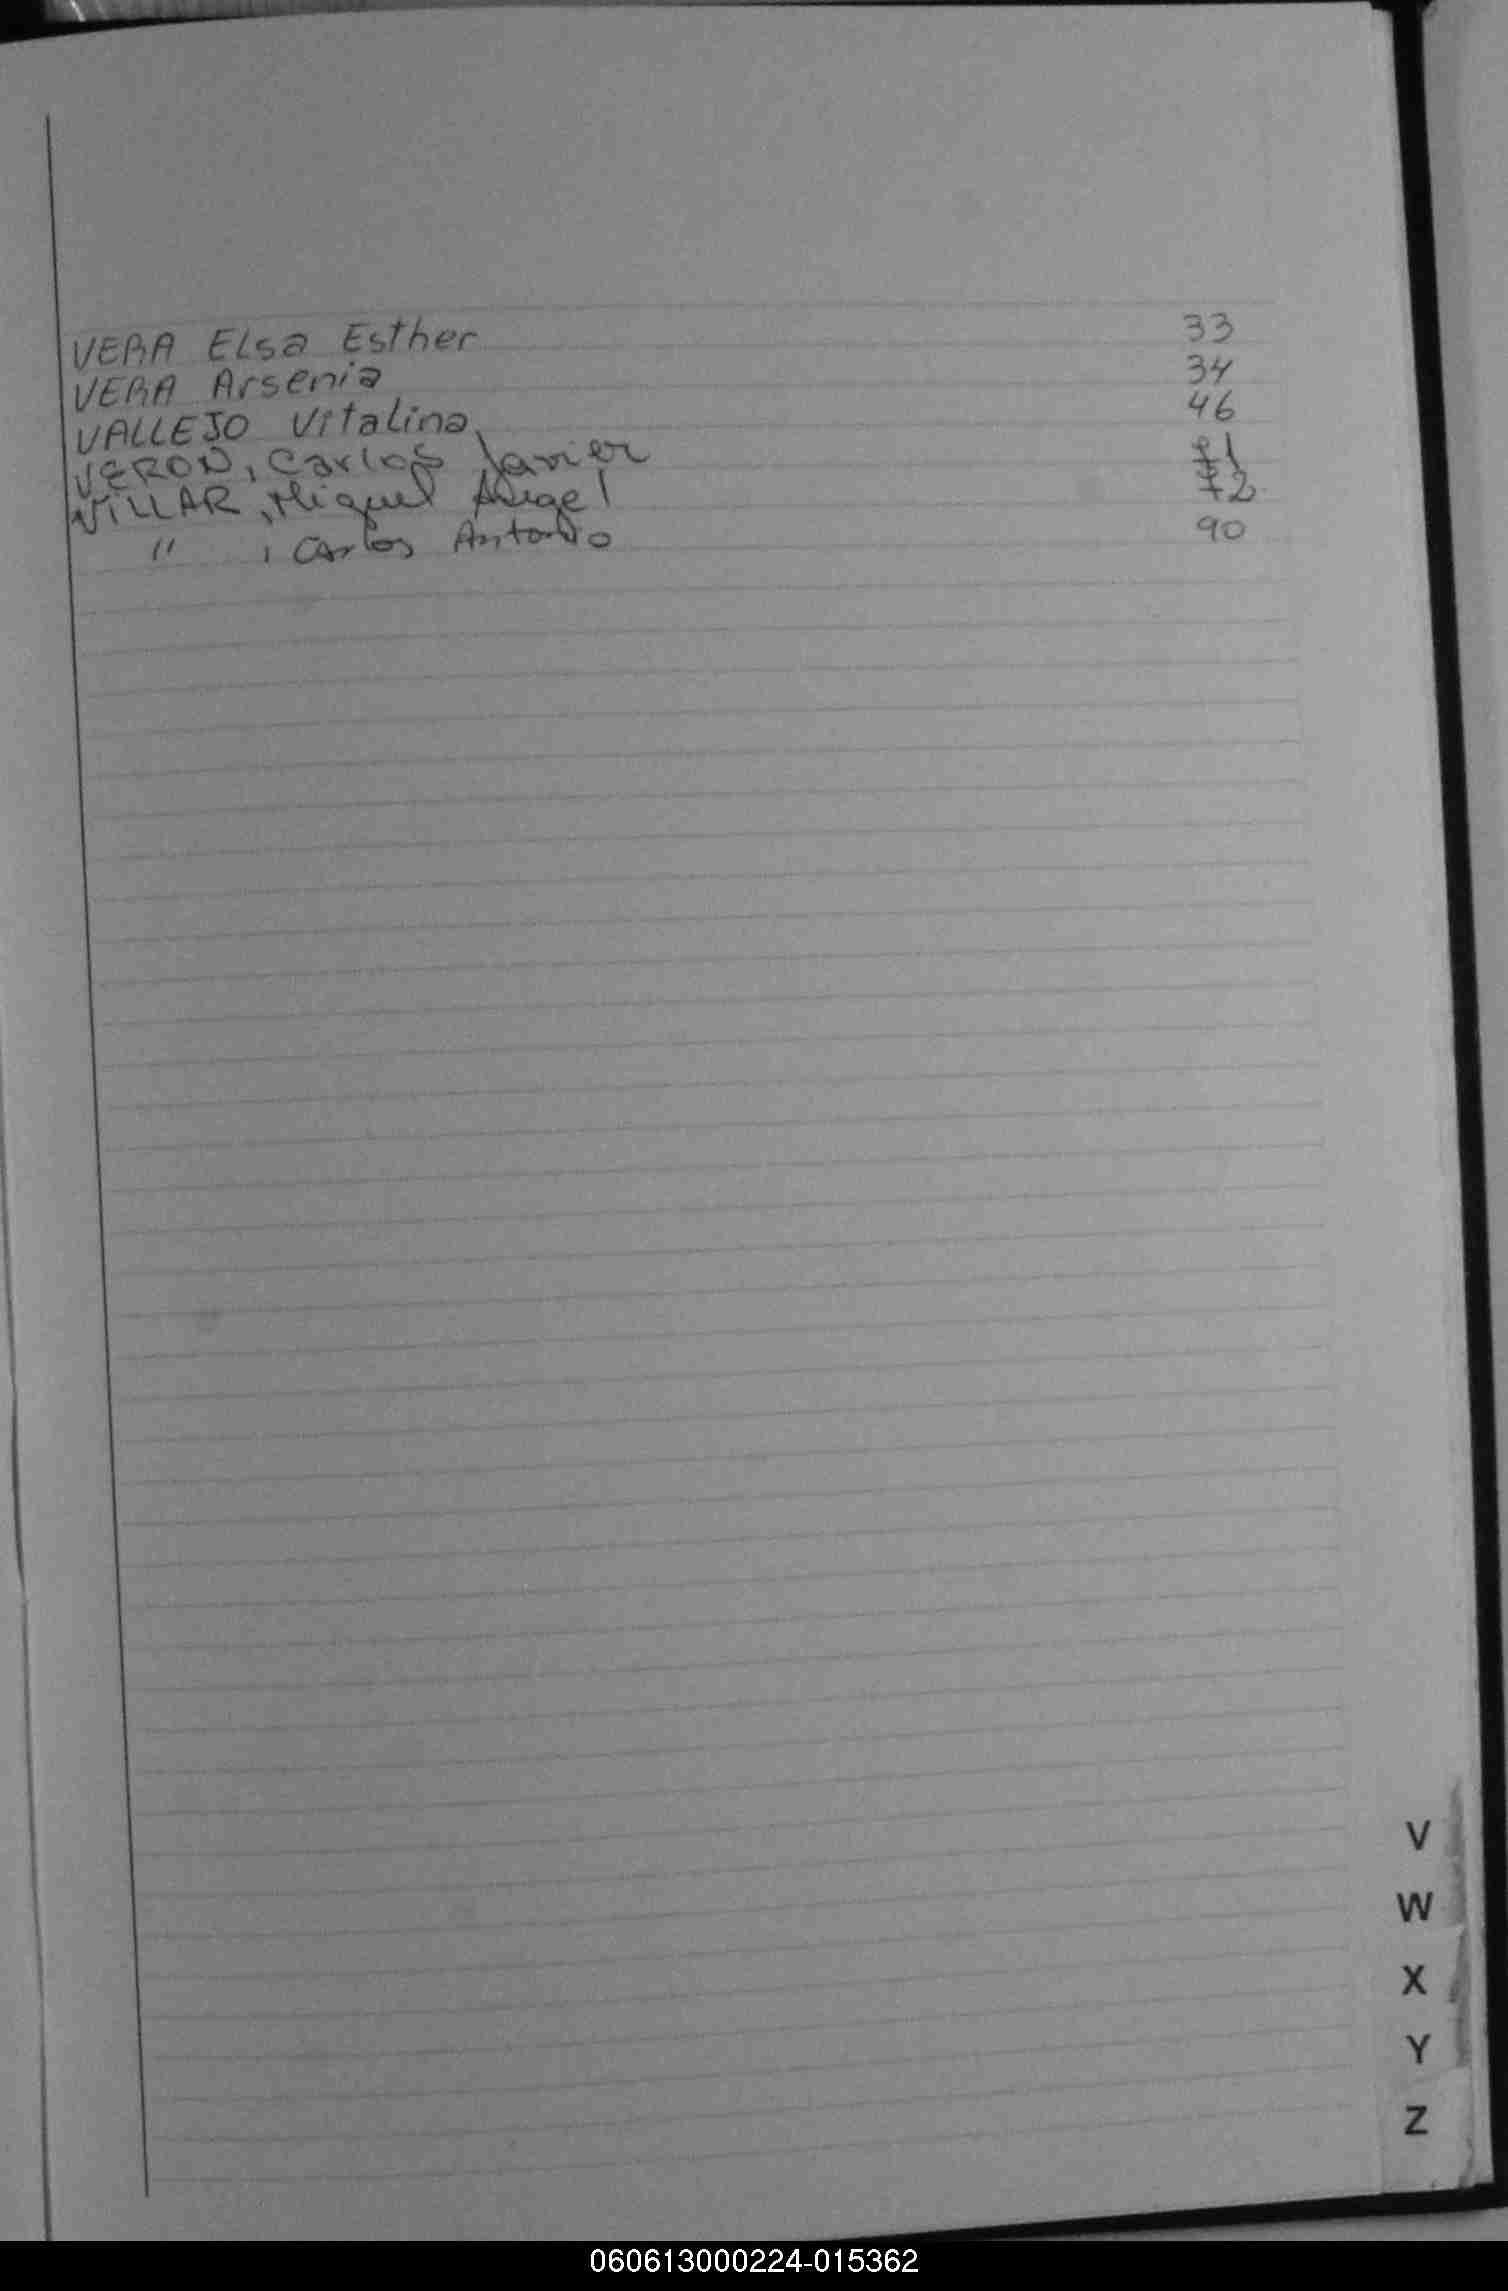 VERA Elsa Esther 33
VERA Arsenia 34
VALLEJO Vitalina 46
VERON, Carlos Javier 71
VILLAR, Miguel Angel 72
" , Carlos Antonio 90
V
W
X
Y
Z
060613000224-015362